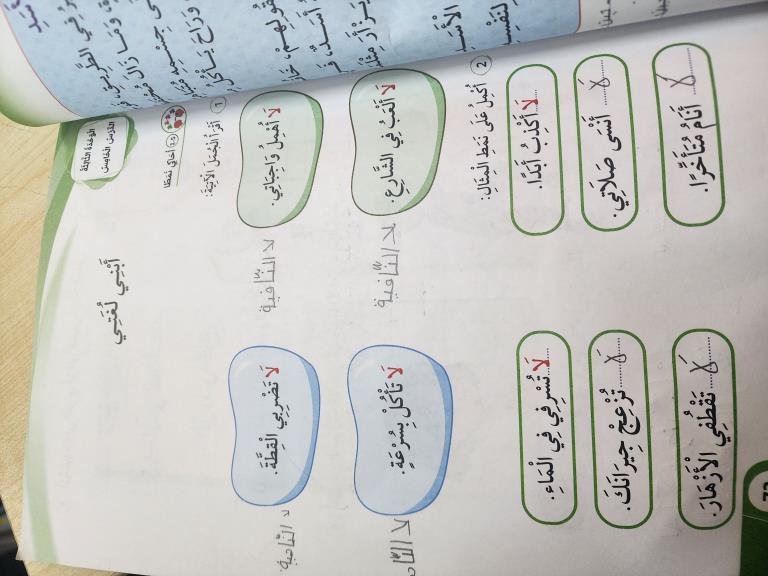 فِي الطَّرِيقِ
وَمَا زَالَ
وَرَاحَ يَأْكُلُ
الْوَحْدَةُ الثَّالِثَةُ
الدَّرْسُ الْخَامِسُ
أَبْنِي لُغَتِي
أُحَاكِي نَمَطًا
1 أَقْرَأُ الْجُمَلَ الْآتِيَةَ:
لَا أُهْمِلُ وَاجِبَاتِي. لا النّافية لَا تَضْرِبِي الْقِطَّةَ.
لَا أَلْعَبُ فِي الشَّارِعِ. لا النّافية لَا تَأْكُلْ بِسُرْعَةٍ.
2 أُكْمِلُ عَلَى نَمَطِ الْمِثَالِ:
لَا أَكْذِبُ أَبَدًا. لَا تُسْرِفِي فِي الْمَاءِ.
لَا أَنْسَى صَلَاتِي. لَا تُزْعِجْ جِيرَانَكَ.
لَا أَنَامُ مُتَأَخِّرًا. لَا تَقْطُفِي الْأَزْهَارَ.